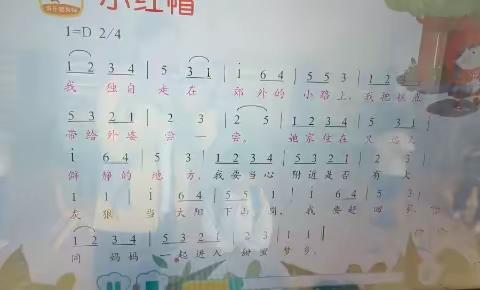 小红帽
1=D 2/4
1 2 3 4 | 5 3 1 | i 6 4 | 5 5 3 | 1 2
我 独自 走在 郊外的 小路上, 我把糕点
5 3 2 1 | 2 3 | 2 5 | 1 2 3 4 | 5 3 1 |
带给外婆 尝一尝。 她家住在又远又
i 6 4 | 5 3 | 1 2 3 4 | 5 3 2 1 | 2 3 |
僻静的地方, 我要当心 附近是否 有大
1 1 | i 6 4 | 5 5 1 | i 6 4 | 5 3 |
灰狼。 当太阳下山岗, 我要赶回家,
1 2 3 4 | 5 3 2 1 | 2 3 | 1 1 ‖
同 妈妈 一起进入 甜蜜梦乡。